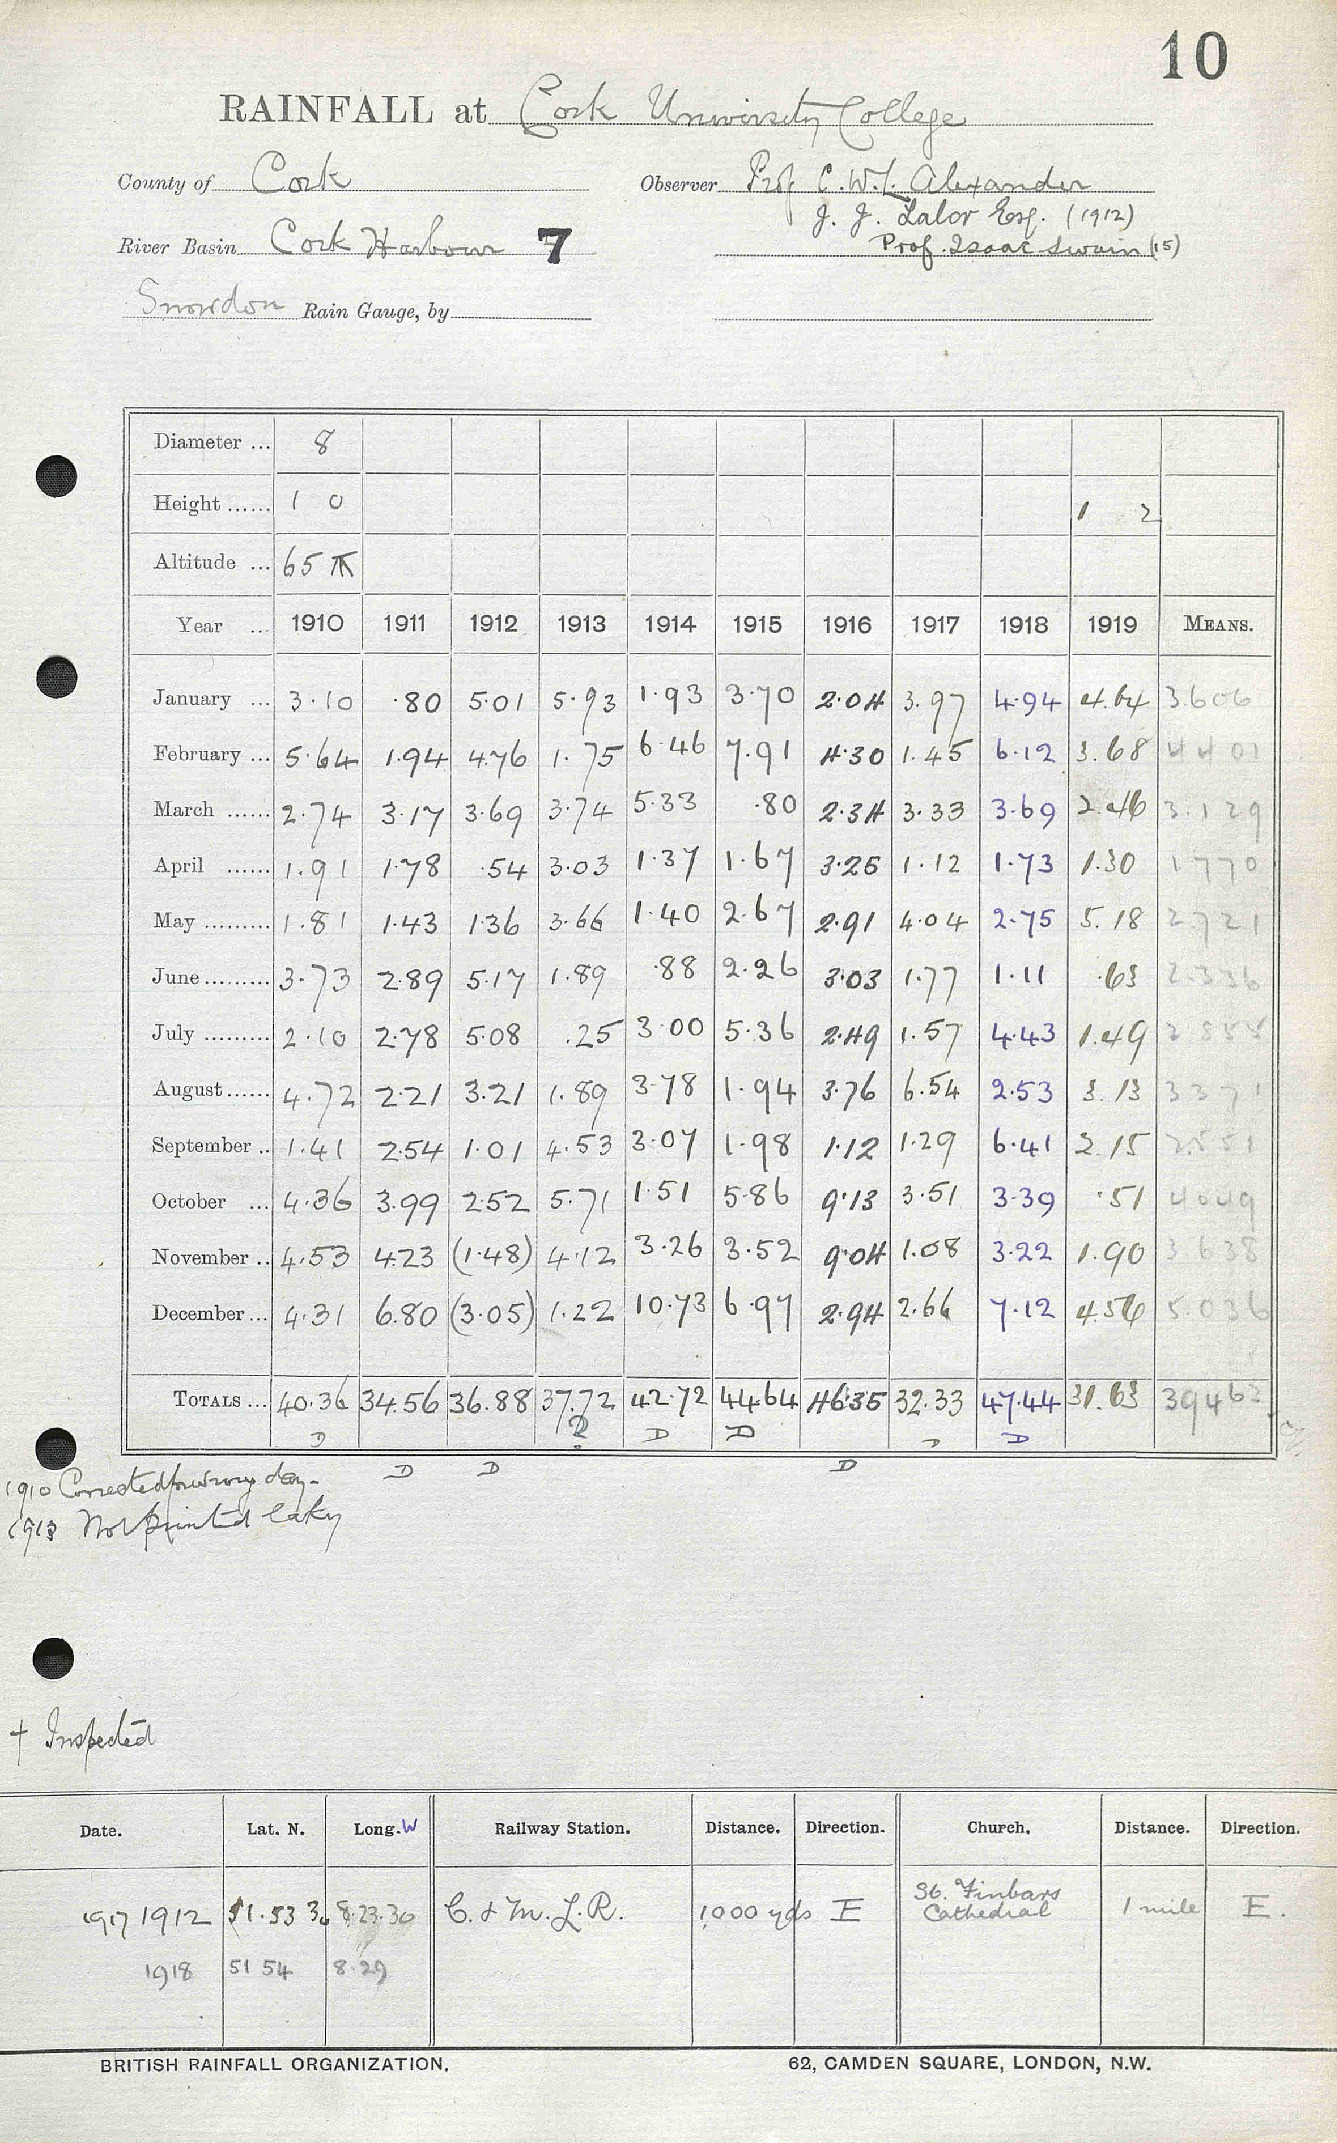 10
RAINFALL at Cork University College
County of Cork Observer Prof C.W.L. Alexander
J. J. Lalor Esq. (1912)
River Basin Cork Harbour 7 Prof. Isaac Swain (15)
Snowdon Rain Gauge, by
Diameter ... 8
Height ...... 1 0 1 2
Altitude ... 65
Year ... 1910 1911 1912 1913 1914 1915 1916 1917 1918 1919 MEANS.
January ... 3.10 .80 5.01 5.93 1.93 3.70 2.04 3.97 4.94 4.64 3.606
February ... 5.64 1.94 4.76 1.75 6.46 7.91 4.30 1.45 6.12 3.68 4401
March ...... 2.74 3.17 3.69 3.74 5.33 .80 2.34 3.33 3.69 2.46 3.129
April ...... 1.91 1.78 .54 3.03 1.37 1.67 3.25 1.12 1.73 1.30 1770
May ......... 1.81 1.43 1.36 3.66 1.40 2.67 2.91 4.04 2.75 5.18 2721
June ......... 3.73 2.89 5.17 1.89 .88 2.26 3.03 1.77 1.11 .63 2.336
July ......... 2.10 2.78 5.08 .25 3.00 5.36 2.49 1.57 4.43 1.49 2855
August ...... 4.72 2.21 3.21 1.89 3.78 1.94 3.76 6.54 2.53 3.13 3371
September .. 1.41 2.54 1.01 4.53 3.07 1.98 1.12 1.29 6.41 2.15 2.551
October ... 4.36 3.99 2.52 5.71 1.51 5.86 9.13 3.51 3.39 .51 4049
November .. 4.53 4.23 (1.48) 4.12 3.26 3.52 9.04 1.08 3.22 1.90 3.638
December ... 4.31 6.80 (3.05) 1.22 10.73 6.97 2.94 2.66 7.12 4.56 5.036
TOTALS ... 40.36 34.56 36.88 37.72 42.72 44.64 46.35 32.33 47.44 31.63 39463
D ? D D D
D D D
1910 Corrected for wrong day.
1913 Not printed leaky
+ Inspected
Date. Lat. N. Long. W Railway Station. Distance. Direction. Church. Distance. Direction.
1917 1912 51.53 30 8.23.30 C. & M. L. R. 1000 yds E St. Finbars Cathedral 1 mile E.
1918 51 54 8.29
BRITISH RAINFALL ORGANIZATION. 62, CAMDEN SQUARE, LONDON, N.W.